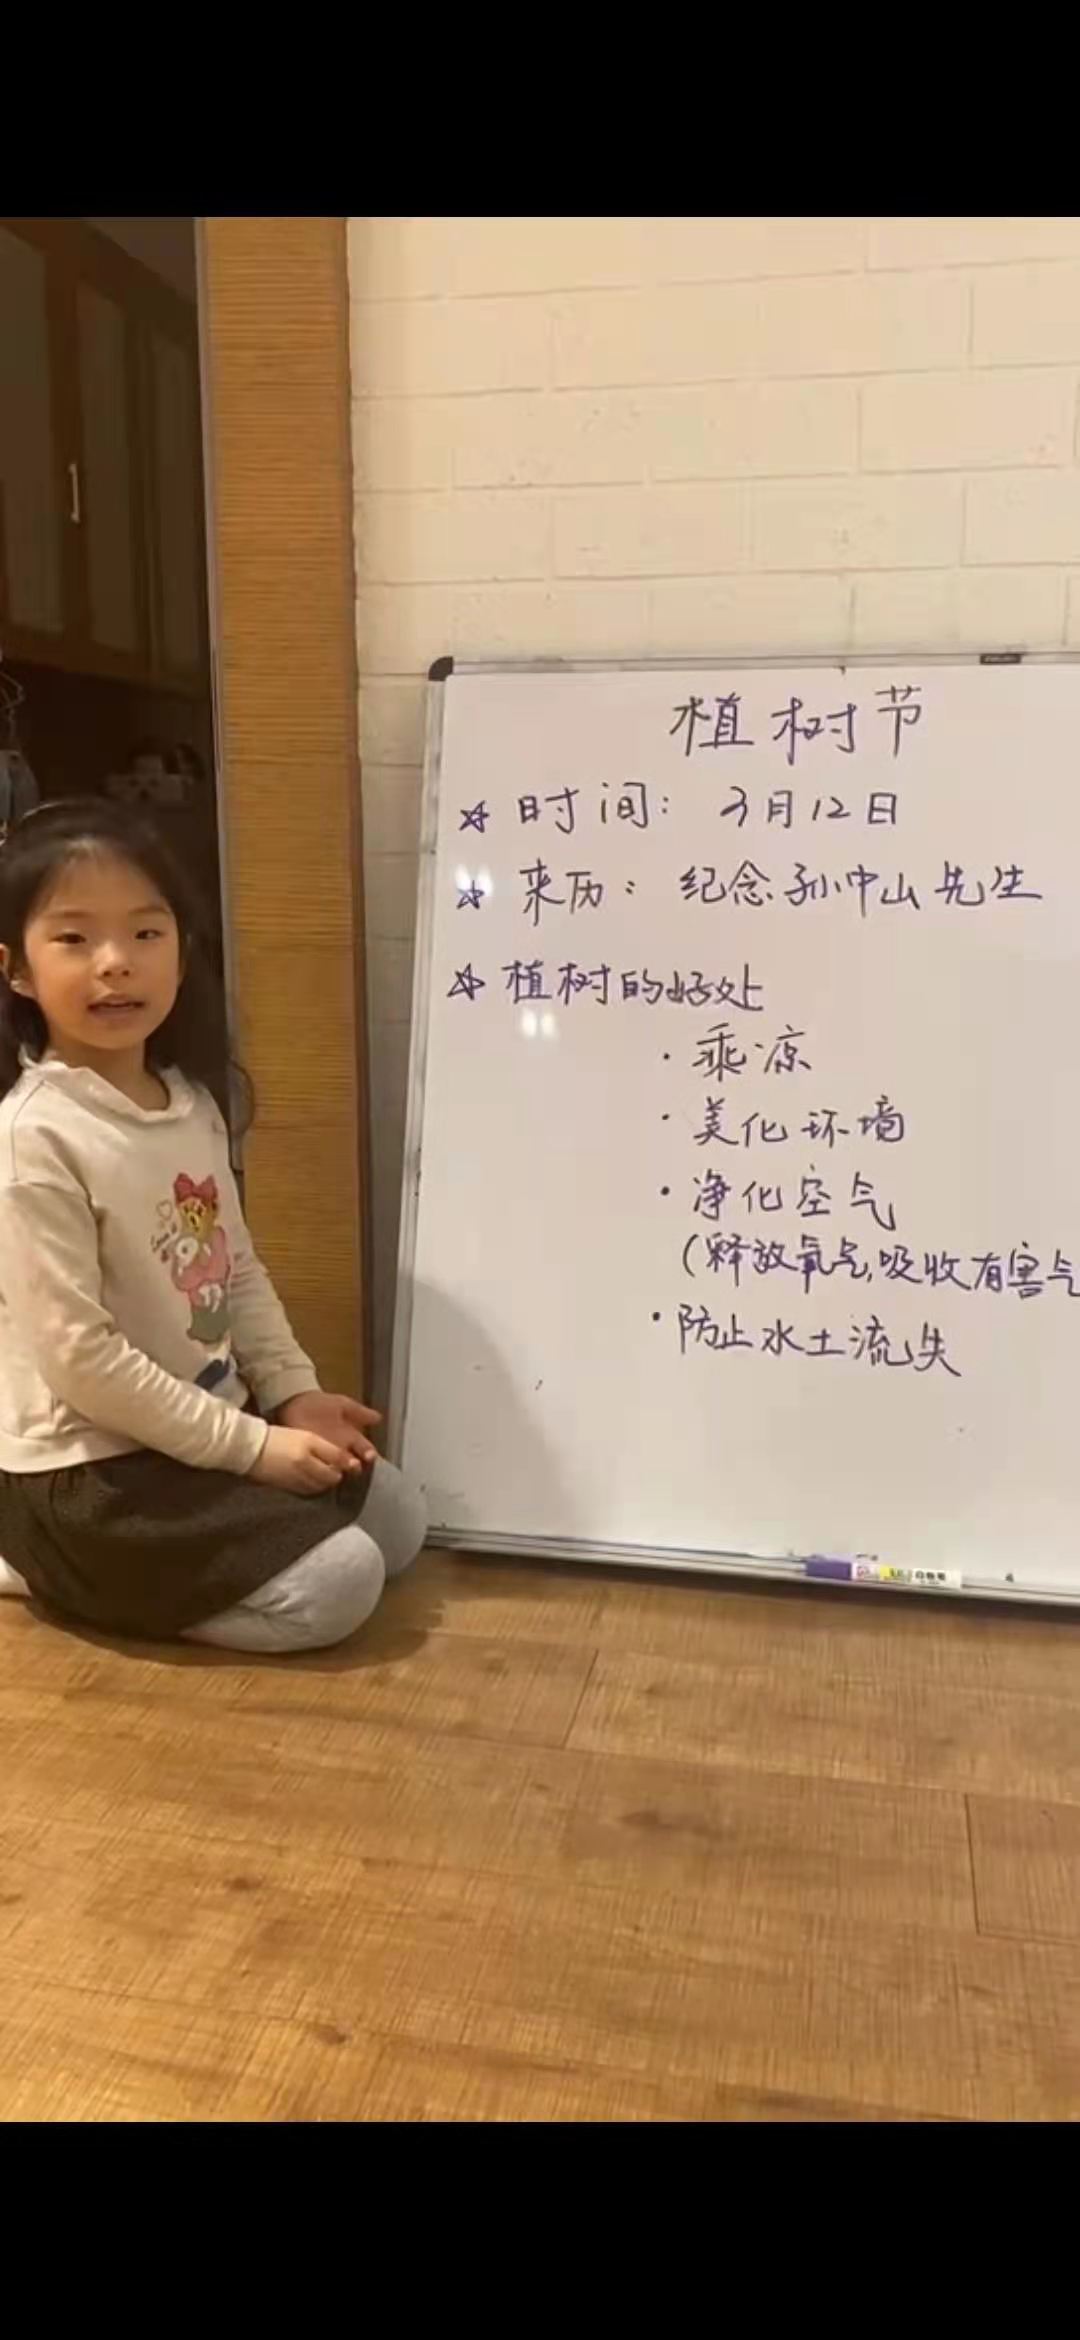 植树节
☆ 时间：3月12日
☆ 来历：纪念孙中山先生
☆ 植树的好处
· 乘凉
· 美化环境
· 净化空气
（释放氧气,吸收有害气
· 防止水土流失